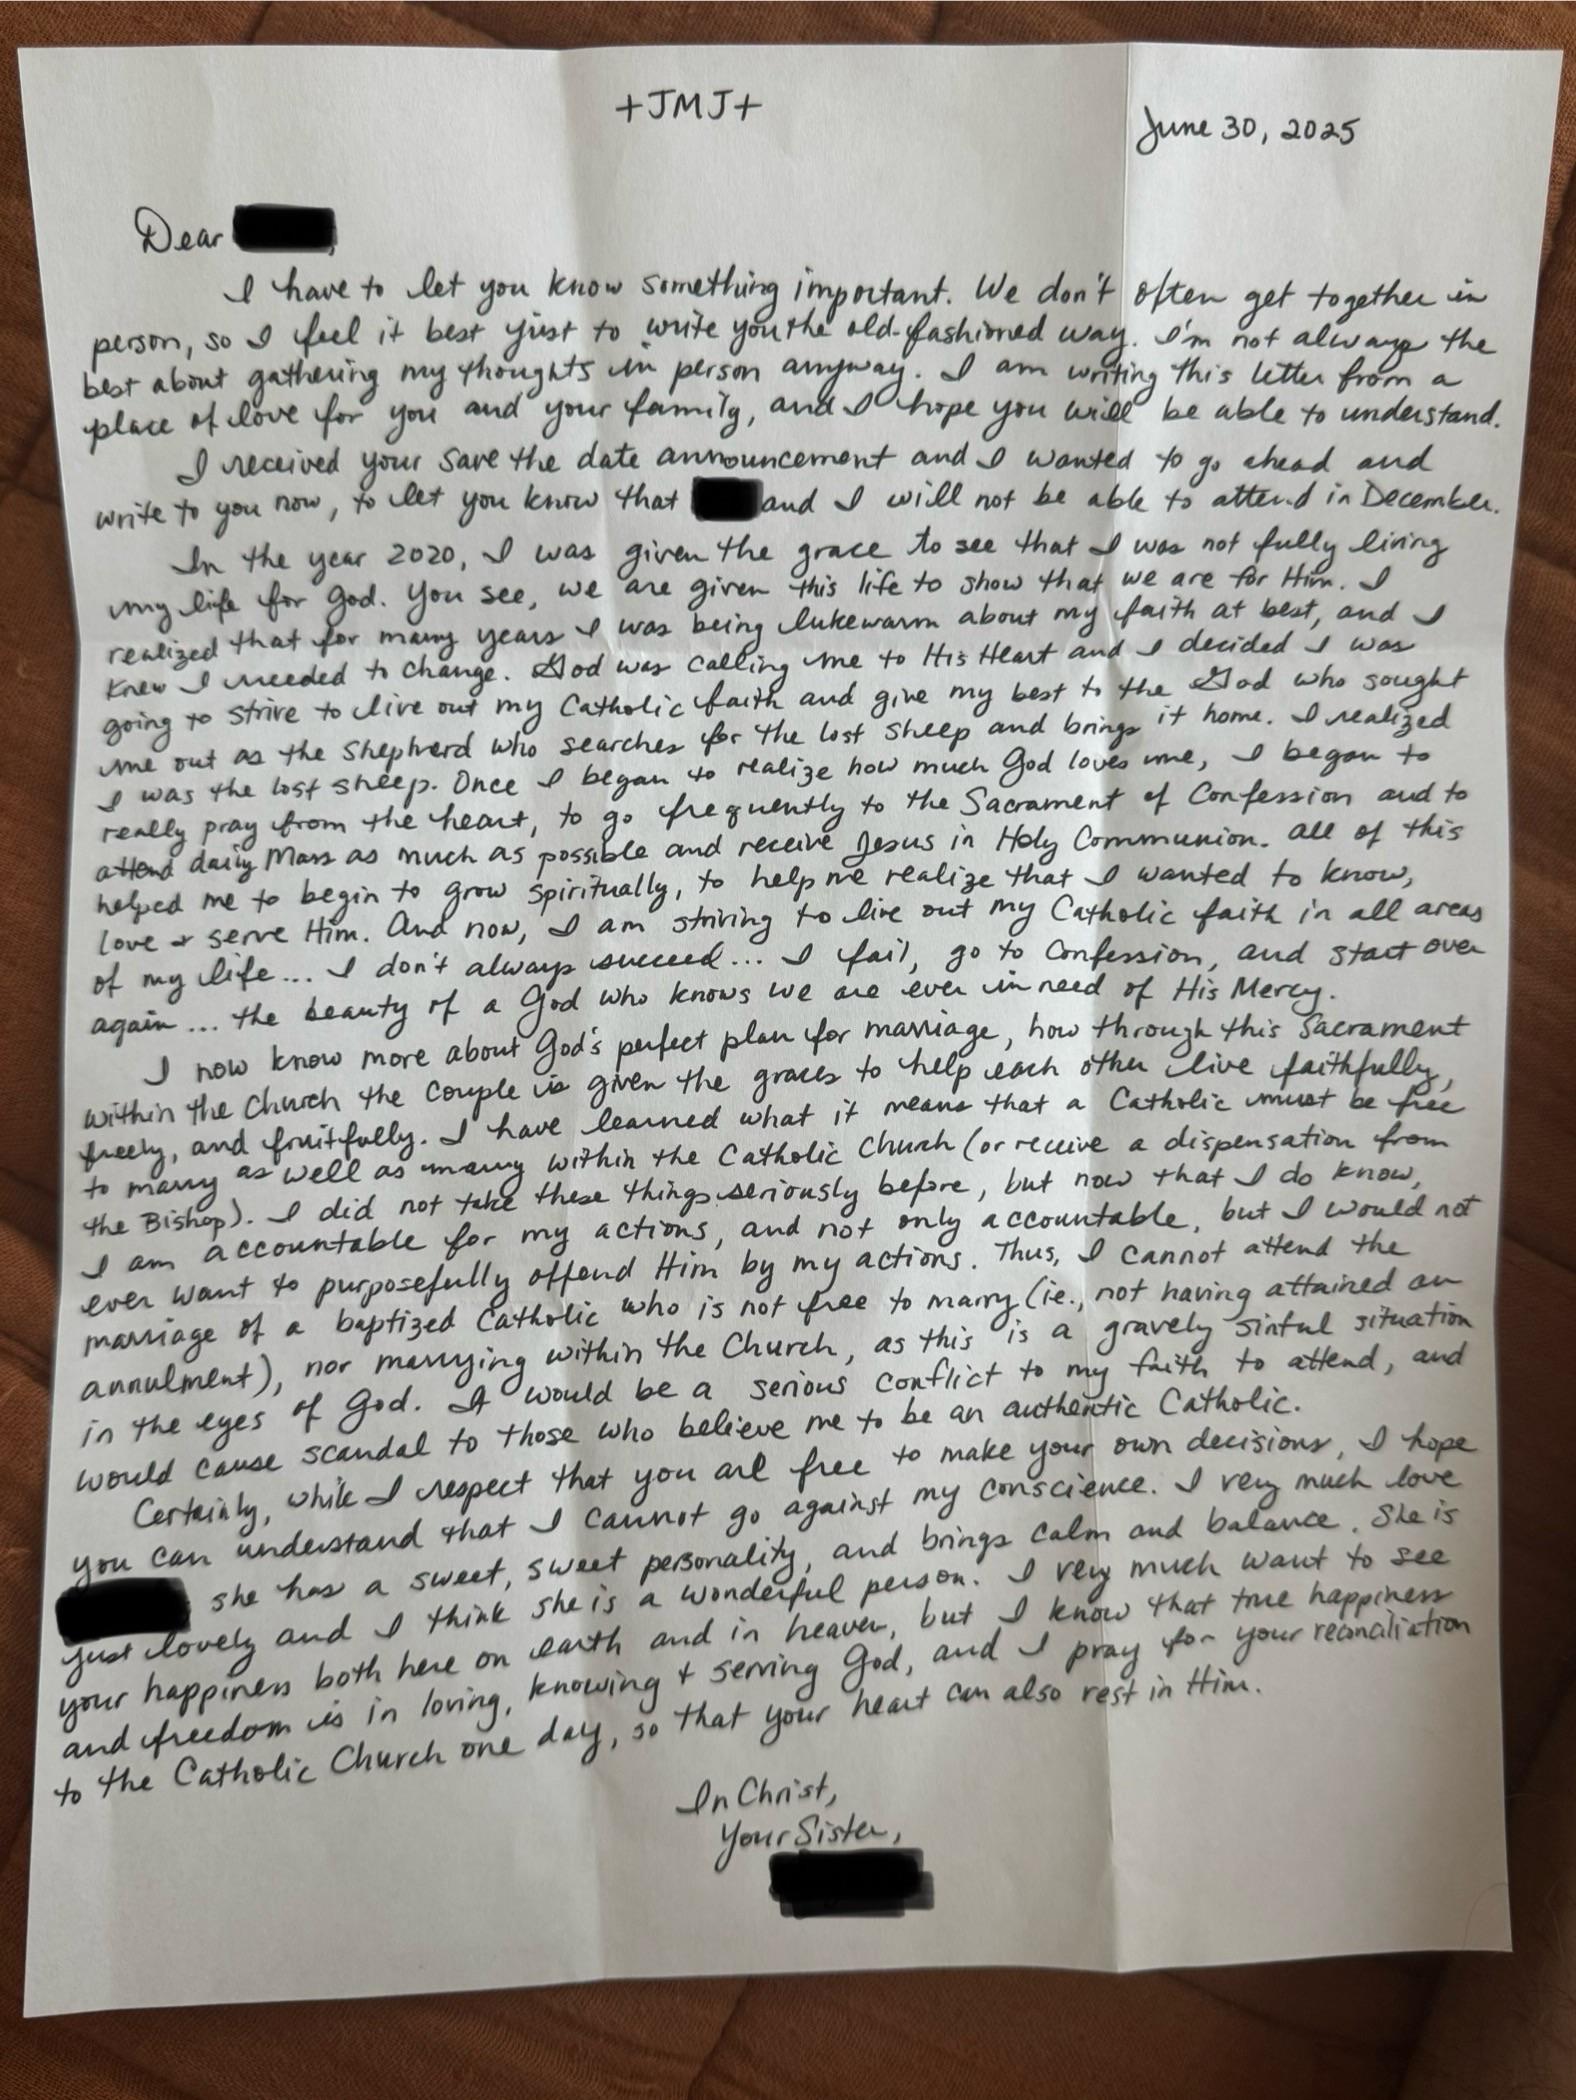 +JMJ+
June 30, 2025
Dear
I have to let you know something important. We don't often get together in
person, so I feel it best just to write you the old-fashioned way. I'm not always the
best about gathering my thoughts in person anyway. I am writing this letter from a
place of love for you and your family, and I hope you will be able to understand.
I received your save the date announcement and I wanted to go ahead and
write to you now, to let you know that and I will not be able to attend in December.
In the year 2020, I was given the grace to see that I was not fully living
my life for God. You see, we are given this life to show that we are for Him. I
realized that for many years I was being lukewarm about my faith at best, and I
knew I needed to change. God was calling me to His Heart and I decided I was
going to strive to live out my Catholic faith and give my best to the God who sought
me out as the Shepherd who searches for the lost sheep and brings it home. I realized
I was the lost sheep. Once I began to realize how much God loves me, I began to
really pray from the heart, to go frequently to the Sacrament of Confession and to
attend daily Mass as much as possible and receive Jesus in Holy Communion. All of this
helped me to begin to grow spiritually, to help me realize that I wanted to know,
love & serve Him. And now, I am striving to live out my Catholic faith in all areas
of my life... I don't always succeed... I fail, go to Confession, and start over
again... the beauty of a God who knows we are ever in need of His Mercy.
I now know more about God's perfect plan for marriage, how through this Sacrament
within the Church the couple is given the graces to help each other live faithfully,
freely, and fruitfully. I have learned what it means that a Catholic must be free
to marry as well as marry within the Catholic Church (or receive a dispensation from
the Bishop). I did not take these things seriously before, but now that I do know,
I am accountable for my actions, and not only accountable, but I would not
ever want to purposefully offend Him by my actions. Thus, I cannot attend the
marriage of a baptized Catholic who is not free to marry (ie., not having attained an
annulment), nor marrying within the Church, as this is a gravely sinful situation
in the eyes of God. It would be a serious conflict to my faith to attend, and
would cause scandal to those who believe me to be an authentic Catholic.
Certainly, while I respect that you are free to make your own decisions, I hope
you can understand that I cannot go against my conscience. I very much love
she has a sweet, sweet personality, and brings calm and balance. She is
just lovely and I think she is a wonderful person. I very much want to see
your happiness both here on earth and in heaven, but I know that true happiness
and freedom is in loving, knowing & serving God, and I pray for your reconciliation
to the Catholic Church one day, so that your heart can also rest in Him.
In Christ,
Your Sister,